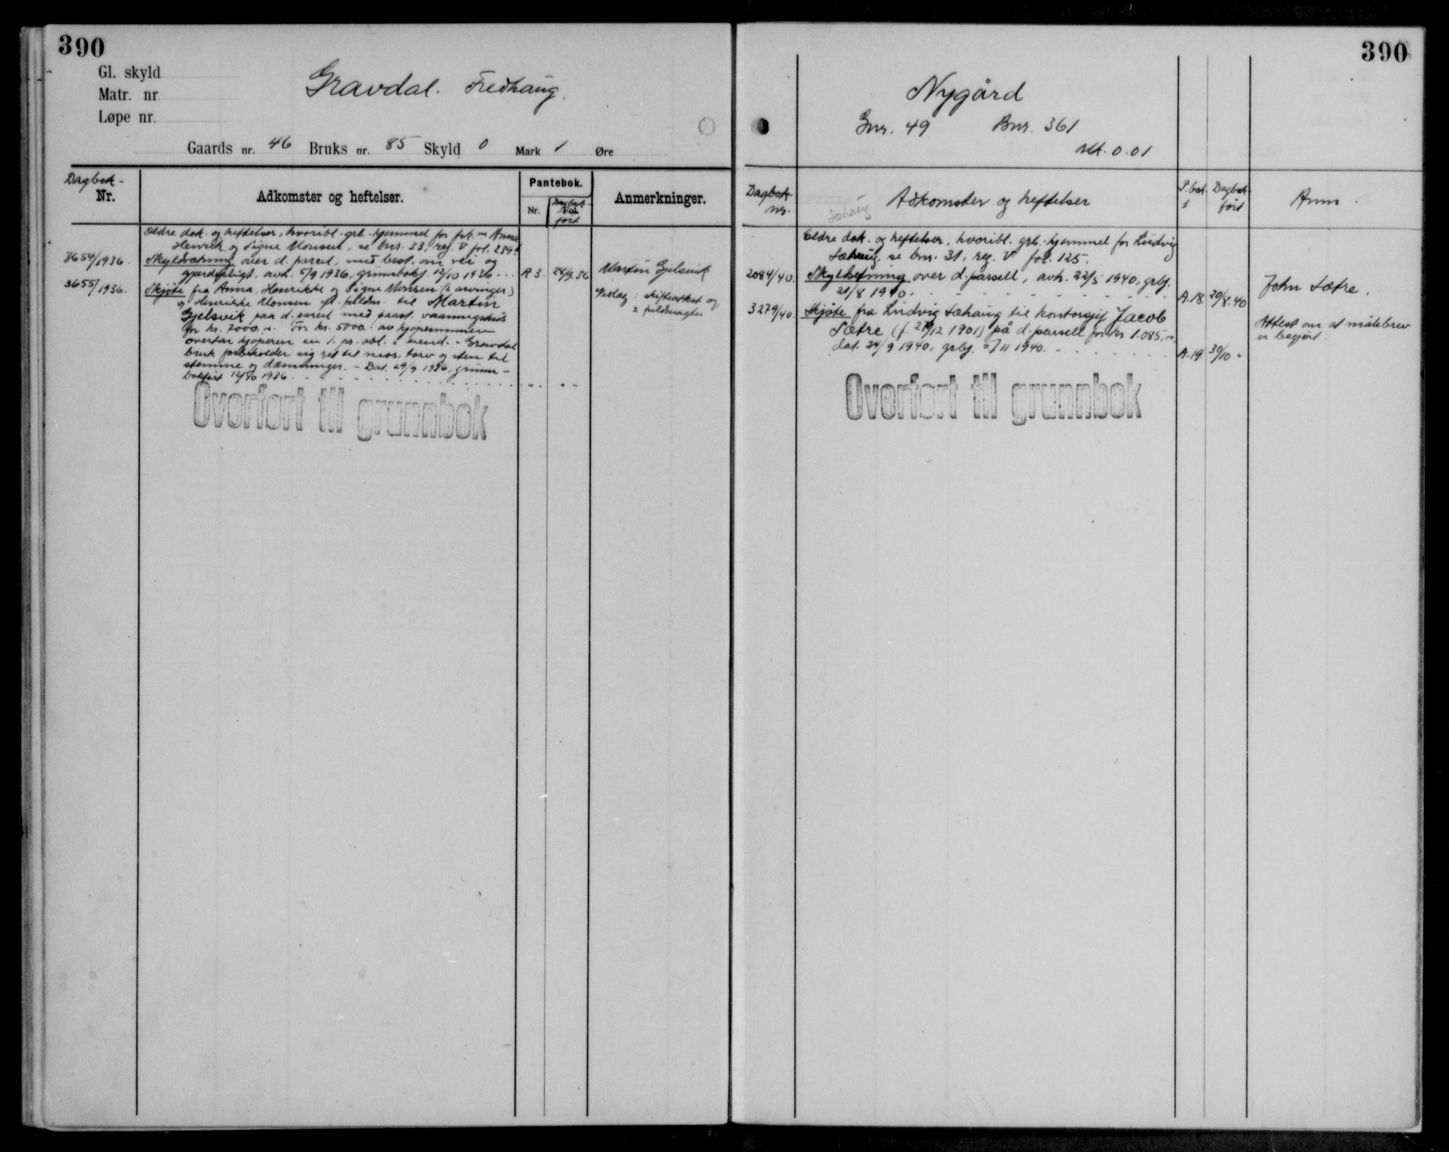 390
Gl. skyld
Matr. nr.
Løpe nr.
Gravdal. Fredhaug.
Gaards nr. 46 Bruks nr. 85 Skyld 0 Mark 1 Øre
Dagbok-
Nr.
Adkomster og heftelser.
Pantebok.
Nr.
Dagbok
ført
Anmerkninger.
Ældre dok. og heftelser, hvoribl. grb. hjemmel for frk. Anna
Henrik. og Signe Monsen, se bnr. 33, reg. V fol. 239.
3654/1936. Skyldsetning over d. parcel, med best. om vei og
gjerdepligt, avh. 5/9 1936, grunnbokf. 12/10 1936 - - - A 3. 24/9.36 Martin Gjelsvik
3655/1936. Skjøte fra Anna, Henrikke og Signe Monsen (2 arvinger)
og Henrikke Monsen til Martin
Gjelsvik paa d. parcel med paast. vaaningshus
for kr. 7000,-. For kr. 5000 av kjøpesummen
overtar kjøperen en 1. pr. obl. - Gravdal
bruk forbeholder sig ret til torv og sten til
stemme og dæmninger. - Dat. 29/9 1936, grunn-
bokført 12/10 1936
skifteattest og
2 fuldmagter
Overført til grunnbok
390
Nygård
Gnr. 49 Bnr. 361
0.01
Dagbok
nr.
Adkomster og heftelser
P.bok
Dagbok
ført
Anm.
Eldre dok. og heftelser, hvoribl. grb. hjemmel for Ludvig
Sæhaug, se bnr. 31, reg. V fol. 125.
2084/40. Skyldsetning over d. parsell, avh. 22/5 1940, grbf.
21/8 1940. A.18. 20/8.40 John Sætre.
3279/40. Skjøte fra Ludvig Sæhaug til kontorsjef Jacob
Sætre (f. 1901) på d. parsell for kr. 1.085,-,
dat. 24/9 1940, grbf. 6/11 1940. A.19. 30/10 "
Attest om at målebrev
er begjært.
Overført til grunnbok